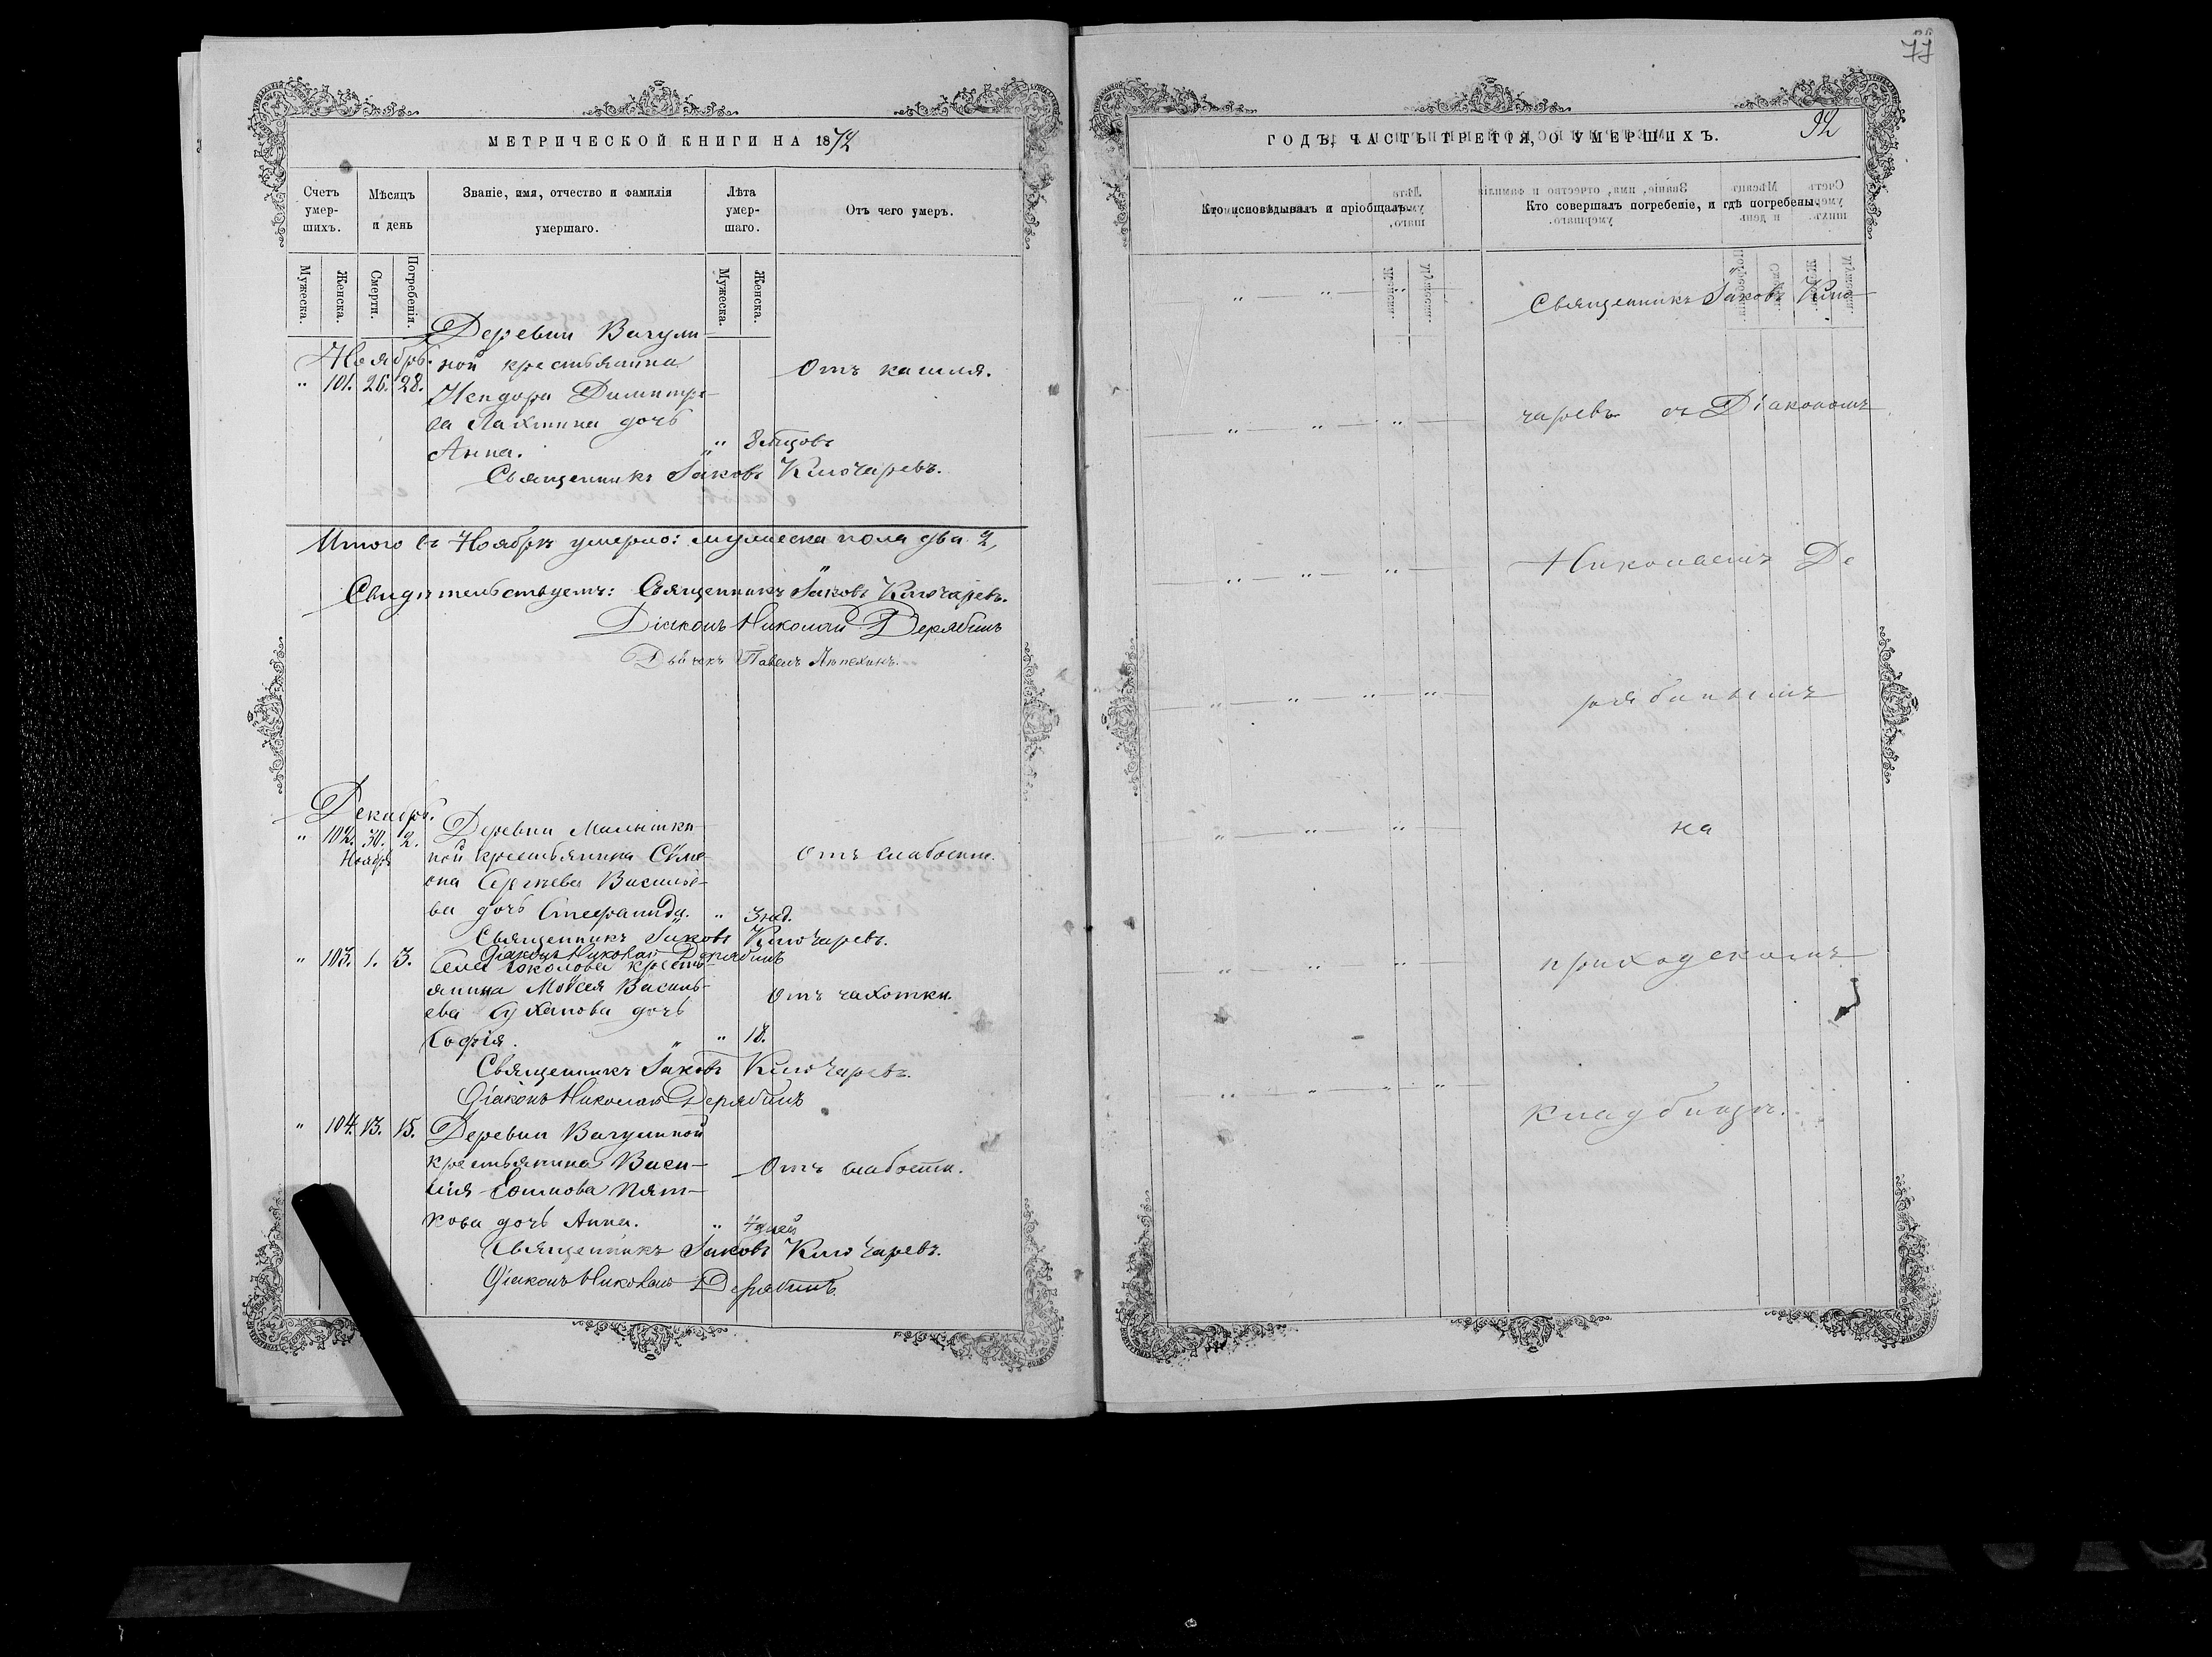 МЕТРИЧЕСКОЙ КНИГИ НА 1872
Счетъ умер-шихъ.
Мѣсяцъ и день
Званіе, имя, отчество и фамилія умершаго.
Лѣта умер-шаго.
Отъ чего умеръ.
Мужеска.
Женска.
Смерти.
Погребенія.
Мужеска.
Женска.
Деревни Вагули-
Ноябрь. ной крестьянина Отъ кашля.
" 101. 26. 28. Димитріе-
ва дочь
Анна. " 8 мѣсяцовъ
Священникъ Іаковъ Ключаревъ.
Итого въ Ноябрѣ умерло: мужеска пола два 2,
Свидѣтельствуемъ: Священникъ Іаковъ Ключаревъ.
Діаконъ Николай Дерябинъ
Дьячекъ Павелъ
Декабрь.
" 102. 30. 2. Деревни
Ноября ной крестьянина Сѵме- Отъ слабости.
она Сергѣева Василье-
ва дочь Стефанида. " 3 нед.
Священникъ Іаковъ Ключаревъ.
Діаконъ Николай Дерябинъ
" 103. 1. 3. Села Соколова кресть-
янина Моѵсея Василь- Отъ чахотки.
ева Суханова дочь
Софія. " 18.
Священникъ Іаковъ Ключаревъ.
Діаконъ Николай Дерябинъ
" 104. 13. 15. Деревни Вагулиной
крестьянина Васи- Отъ слабости.
лія Пят-
кова дочь Анна. " 4 дней
Священникъ Іаковъ Ключаревъ.
Діаконъ Николай Дерябинъ.
77
92
ГОДЪ, ЧАСТЬ ТРЕТІЯ, О УМЕРШИХЪ.
Кто исповѣдывалъ и пріобщалъ.
Кто совершалъ погребеніе, и гдѣ погребены.
Священникъ Іаковъ Клю-
чаревъ съ Діакономъ
Николаемъ Де
рябинымъ
на
приходскомъ
кладбищѣ.